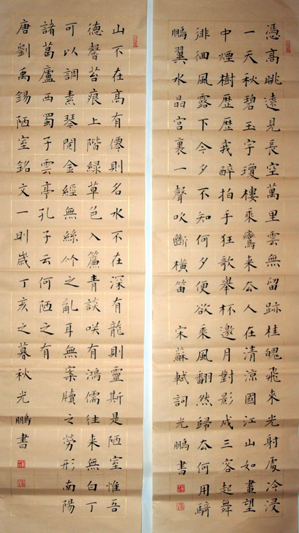 憑高眺遠見長空萬里雲無留跡桂魄飛來光射處冷浸
一天秋碧玉宇瓊樓乘鸞來去人在清涼國江山如畫望
中煙樹歷歷我醉拍手狂歌舉杯邀月對影成三客起舞
徘徊風露下今夕不知何夕便欲乘風翻然歸去何用騎
鵬翼水晶宮裏一聲吹斷橫笛 宋蘇軾詞光鵬書
山不在高有僊則名水不在深有龍則靈斯是陋室惟吾
德馨苔痕上階綠草色入簾青談咲有鴻儒往來無白丁
可以調素琴閱金經無絲竹之亂耳無案牘之勞形南陽
諸葛廬西蜀子雲亭孔子云何陋之有
唐劉禹錫陋室銘文一則歲丁亥之暮秋光鵬書